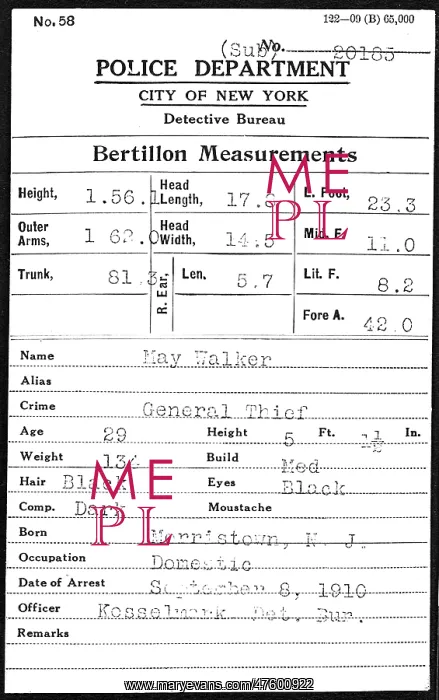 No. 58
122—09 (B) 65,000
(Sub) No. 20185
POLICE DEPARTMENT
CITY OF NEW YORK
Detective Bureau
Bertillon Measurements
Height, 1.56.1 Head Length, 17. L. Foot, 23.3
Outer Arms, 1 62.0 Head Width, 14.5 Mid. F. 11.0
Trunk, 81.3 R. Ear, Len. 5.7 Lit. F. 8.2
Fore A. 42.0
Name May Walker
Alias
Crime General Thief
Age 29 Height 5 Ft. In.
Weight Build Med
Hair Black Eyes Black
Comp. Dark Moustache
Born Morristown, N. J.
Occupation Domestic
Date of Arrest September 8, 1910
Officer Kosselmark Det. Bur.
Remarks
ME
PL
ME
PL
www.maryevans.com/47600922